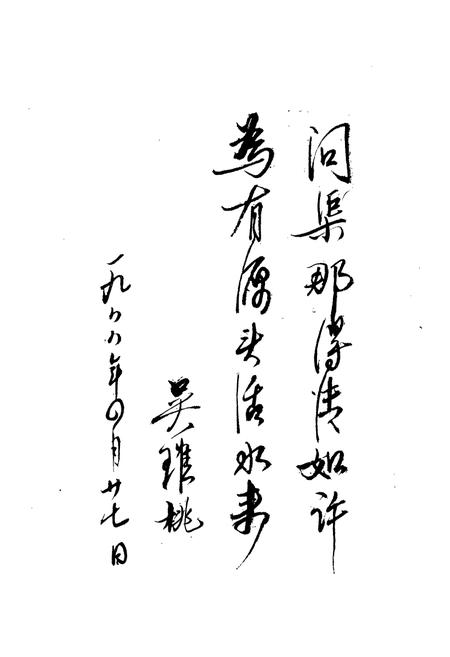 问渠那得清如许
為有源头活水来
吴桃
一九八八年四月廿七日